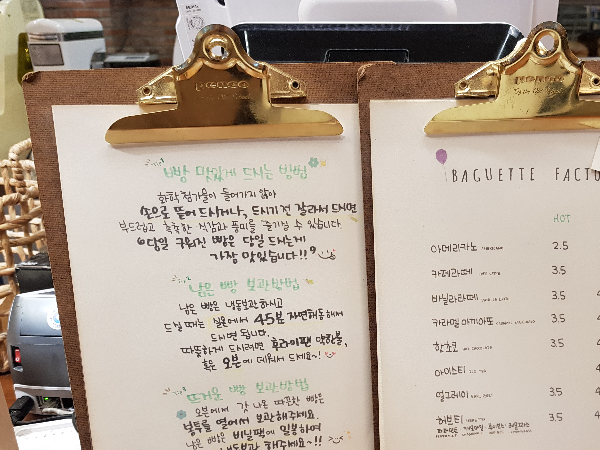 빵 맛있게 드시는 방법
화학첨가물이 들어가지 않아
손으로 뜯어 드시거나, 드시기전 갈라서 드시면
부드럽고 촉촉한 식감과 풍미를 즐기실 수 있습니다
"당일 구워진 빵은 당일 드시는게
가장 맛있습니다!!"
남은 빵 보관방법
남은 빵은 냉동보관하시고
드실때는 실온에서 45분 자연해동해서
드시면 됩니다.
따뜻하게 드시려면 후라이팬 약한불,
혹은 오븐에 데워서 드세요~!
뜨거운 빵 보관방법
오븐에서 갓 나온 따끈한 빵은
봉투를 열어서 보관해주세요.
남은 빵은 비닐팩에 밀봉하여
냉동보관 해주세요~!!
BAGUETTE FACTO
HOT
아메리카노 AMERICANO 2.5
카페라떼 CAFE LATTE 3.5
바닐라라떼 3.5
카라멜 마끼아또 3.5
핫초코 3.5
아이스티
얼그레이 3.5
허브티 3.5